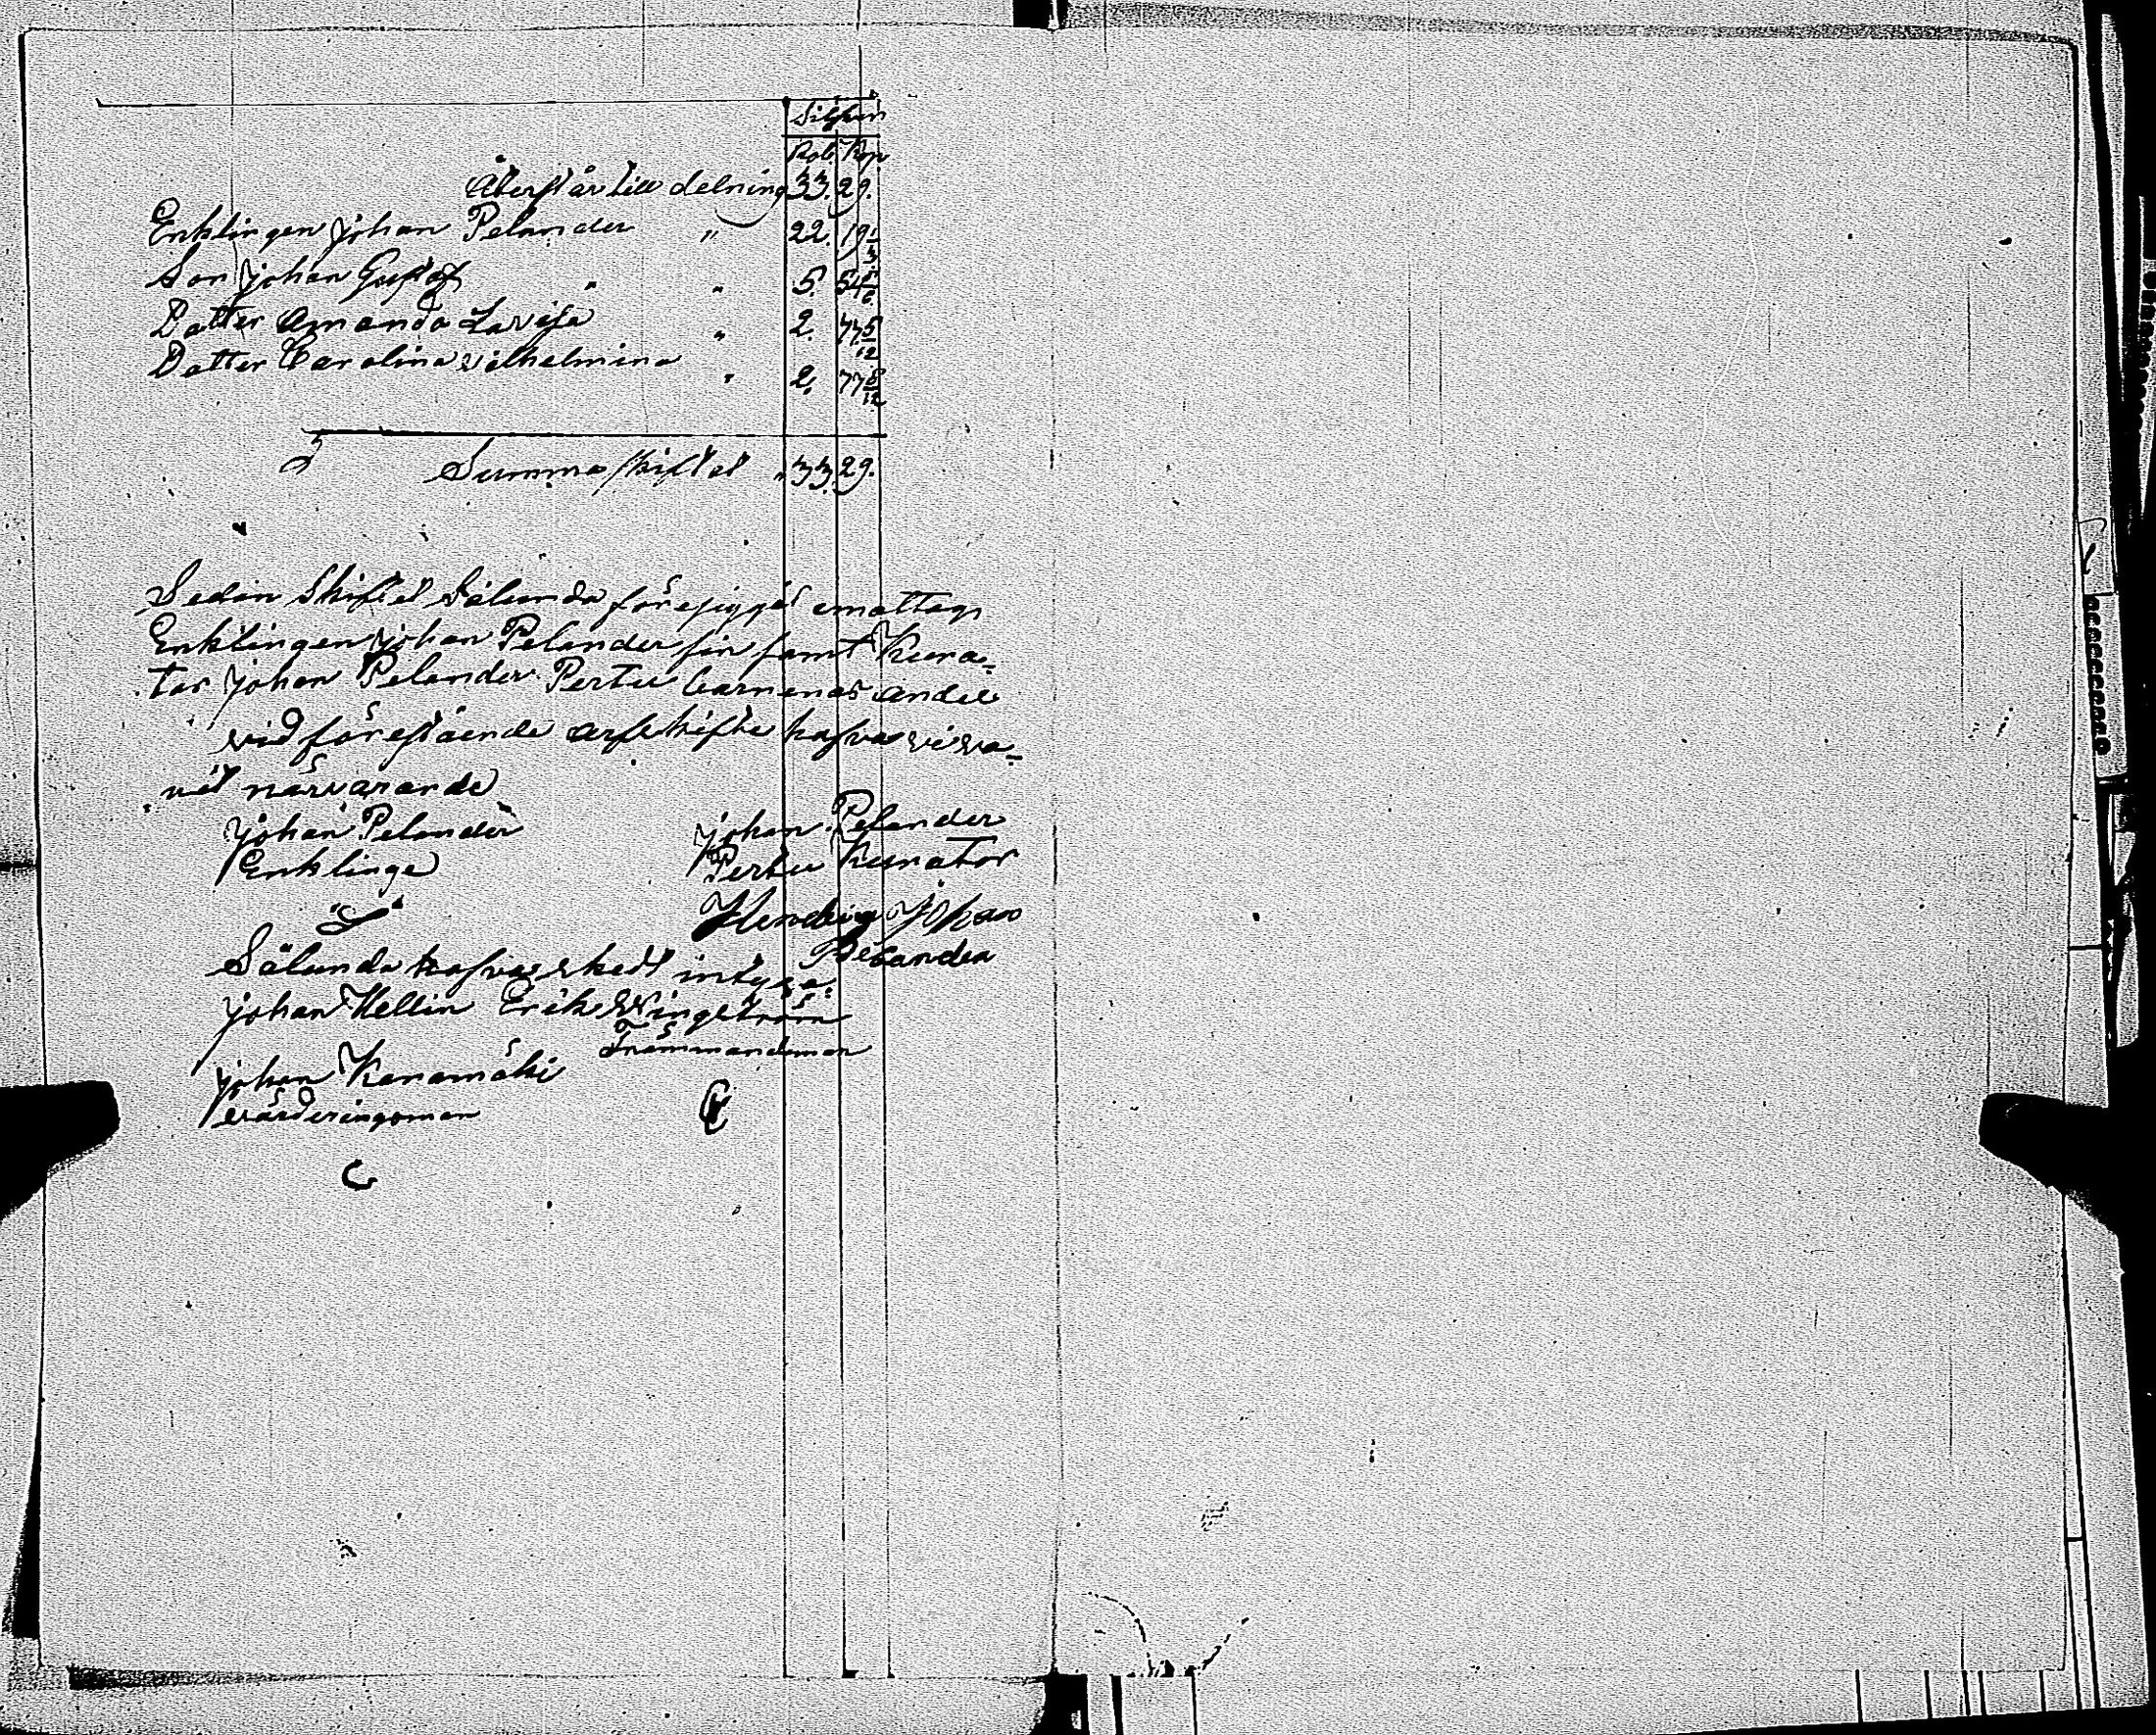 Silfver
Rub. Kop
Återstår till delning 33. 29.
Enklingen Johan Pelander " 22. 19 1/3
Son Johan Gustaf " " 5. 54 5/6
Datter Amanda Lavisa " 2. 77 5/12
Datter Carolina vilhelmina " 2. 77 5/12
Summa skiftet " 33. 29.
Sedan Skiftet Sålunda föresiggåt emottags
Enklingen Johan Pelander sin samt Kura-
tor Johan Pelander Pertu barnenas andel
vid förestående arfskifte hafva vi va-
rit närvarande
Johan Pelander Johan Pelander
Enklinge Pertu Kurator
Henderig Johan
Pelander
Sålunda hafva skedt intyga:
Johan Hellin Erik Wingström
Främmandeman
Johan Karamäki
värderingsman